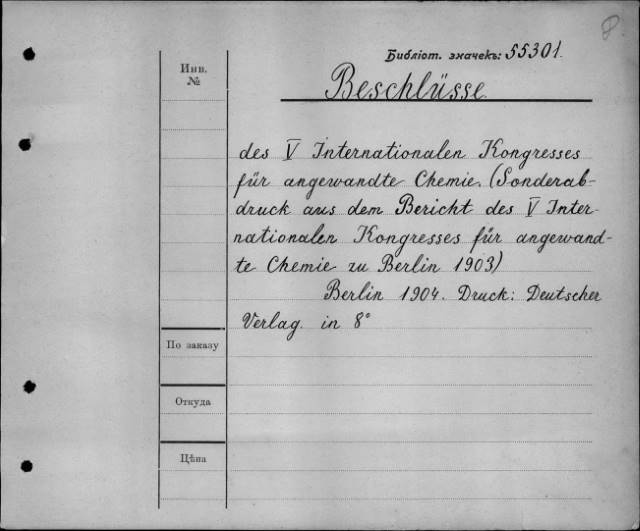 Библіот. значекъ: 55301.
Инв.
№
Beschlüsse
des V Internationalen Kongresses
für angewandte Chemie. (Sonderab-
druck aus dem Bericht des V Inter-
nationalen Kongresses für angewand-
te Chemie zu Berlin 1903)
Berlin 1904. Druck: Deutscher
Verlag. in 8°
По заказу
Откуда
Цѣна